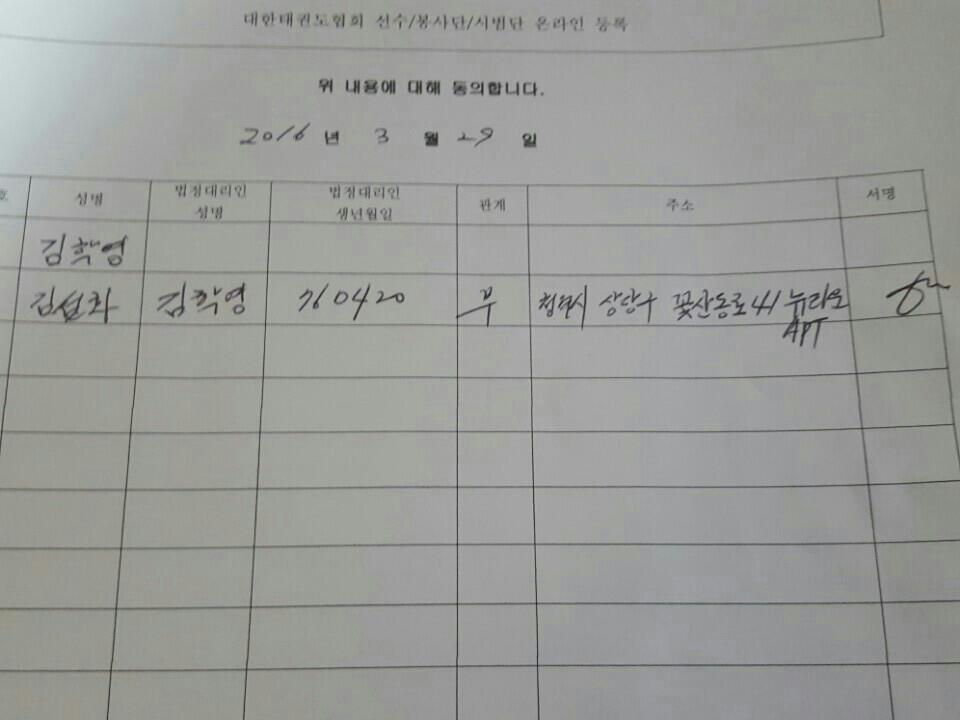 대한태권도협회 선수/봉사단/시범단 온라인 등록
위 내용에 대해 동의합니다.
2016 년 3 월 29 일
호 성명 법정대리인 성명 법정대리인 생년월일 관계 주소 서명
김학영
김섭좌 김학영 760420 부 청주시 상당구 꽃산동로 41 뉴타운
APT